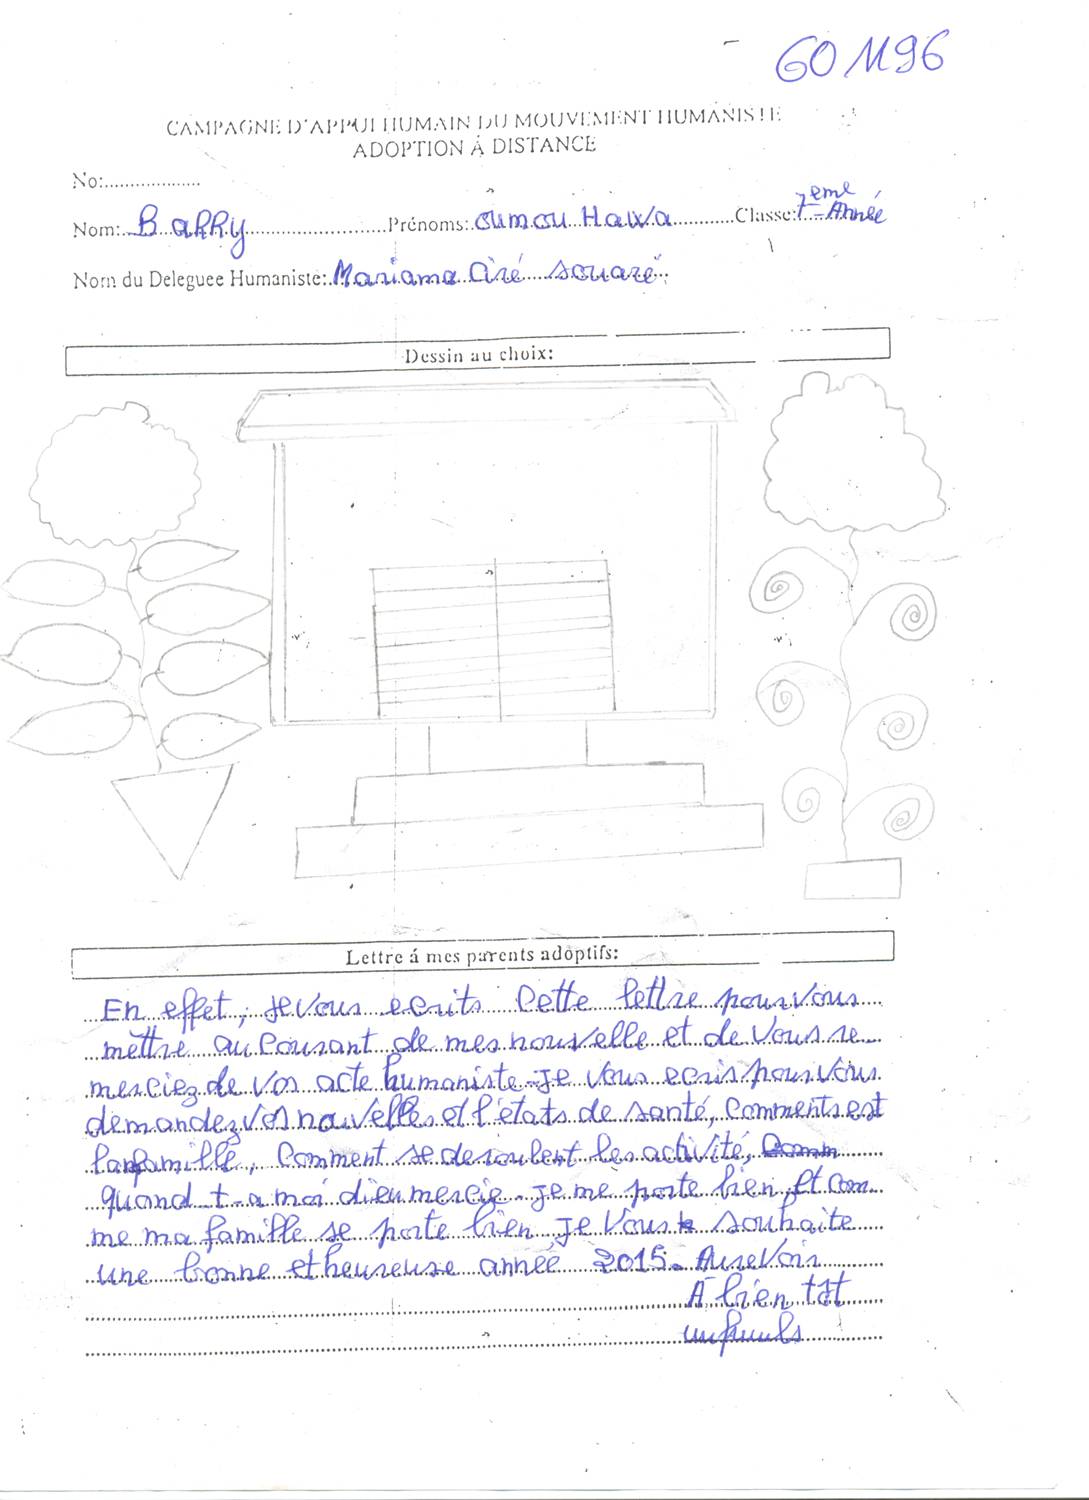 GO 1196
CAMPAGNE D'APPUI HUMAIN DU MOUVEMENT HUMANISTE
ADOPTION À DISTANCE
No:...................
Nom: BARRY Prénoms: Oumou Hawa Classe: 7ème Année
Nom du Deleguee Humaniste: Mariama Ciré Souaré
Dessin au choix:
Lettre á mes parents adoptifs:
En effet, je vous ecrits Cette lettre pour vous
mettre au courant de mes nouvelle et de vous re-
merciez de vos acte humaniste. Je vous ecris pour vous
demandez vos nouvelles et l'états de santé, comments est
la famille, Comment se deroulent les activité,
quand-t-a moi dieu mercie. Je me porte bien, et com-
me ma famille se porte bien, je vous souhaite
une bonne et heureuse année 2015. Au revoir
À bien tôt